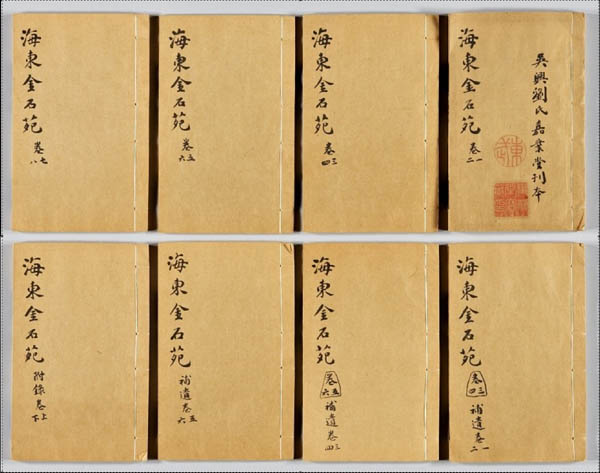 吳興劉氏嘉業堂刊本
海東金石苑 卷一二
海東金石苑 卷三四
海東金石苑 卷五六
海東金石苑 卷七八
海東金石苑 卷三四 補遺卷一二
海東金石苑 卷五六 補遺卷三四
海東金石苑 補遺卷五六
海東金石苑 附錄卷上下